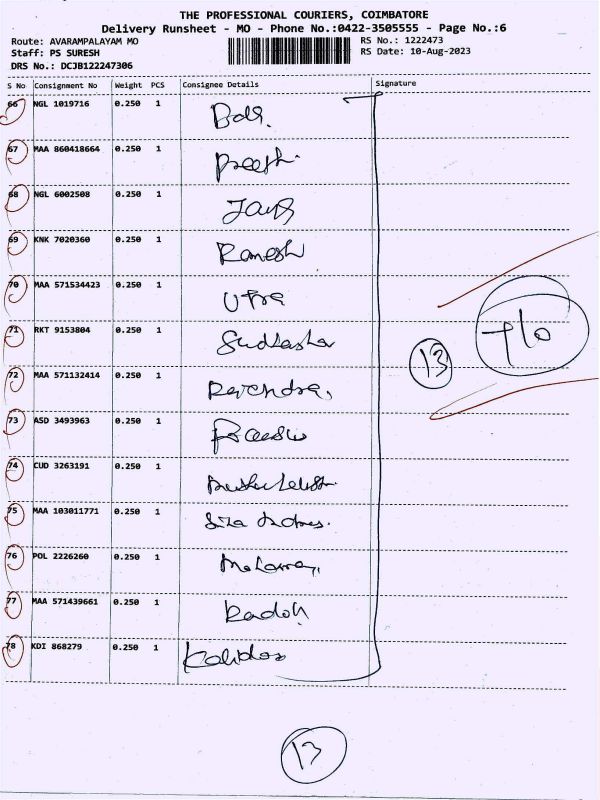 THE PROFESSIONAL COURIERS, COIMBATORE
Delivery Runsheet - MO - Phone No.:0422-3505555 - Page No.:6
Route: AVARAMPALAYAM MO RS No.: 1222473
Staff: PS SURESH RS Date: 10-Aug-2023
DRS No.: DCJB122247306
S No Consignment No Weight PCS Consignee Details Signature
66 NGL 1019716 0.250 1
67 MAA 860418664 0.250 1
68 NGL 6002508 0.250 1
69 KNK 7020360 0.250 1 Ramesh
70 MAA 571534423 0.250 1
71 RKT 9153804 0.250 1
72 MAA 571132414 0.250 1
73 ASD 3493963 0.250 1
74 CUD 3263191 0.250 1
75 MAA 103011771 0.250 1
76 POL 2226260 0.250 1
77 MAA 571439661 0.250 1
78 KDI 868279 0.250 1 Kalidas
13
13